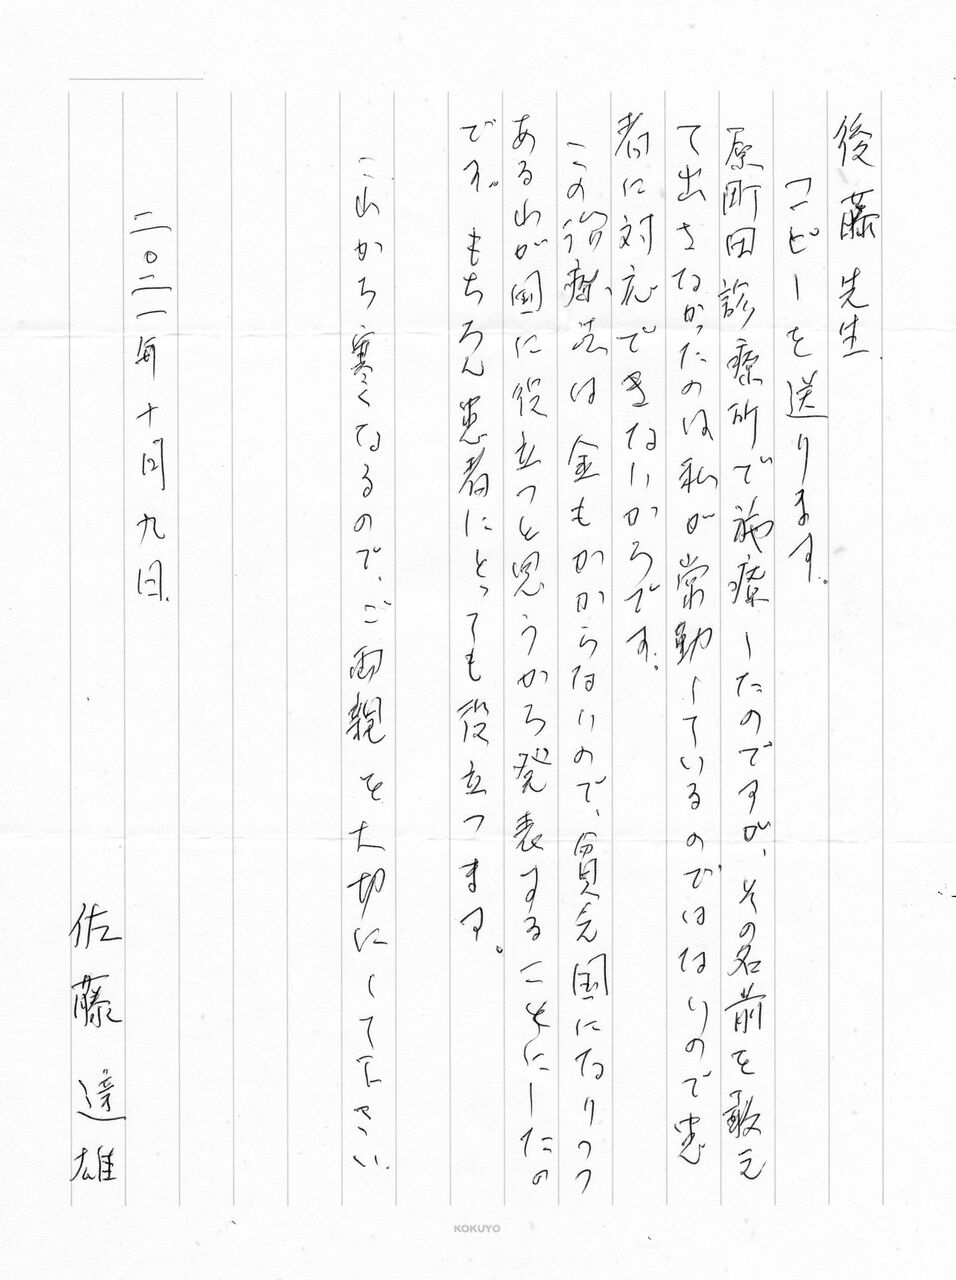 後藤先生
コピーを送ります。
原町田診療所で施療したのですが、その名前を敢え
て出さなかったのは私が常勤しているのではないので患
者に対応できないからです。
この治療法は金もかからないので、貧乏国になりつつ
ある山が国に役立つと思うから発表することにしたの
です。もちろん患者にとっても役立つます。
これから寒くなるので、ご両親を大切にして下さい
二〇二一年十月九日
佐藤達雄
KOKUYO